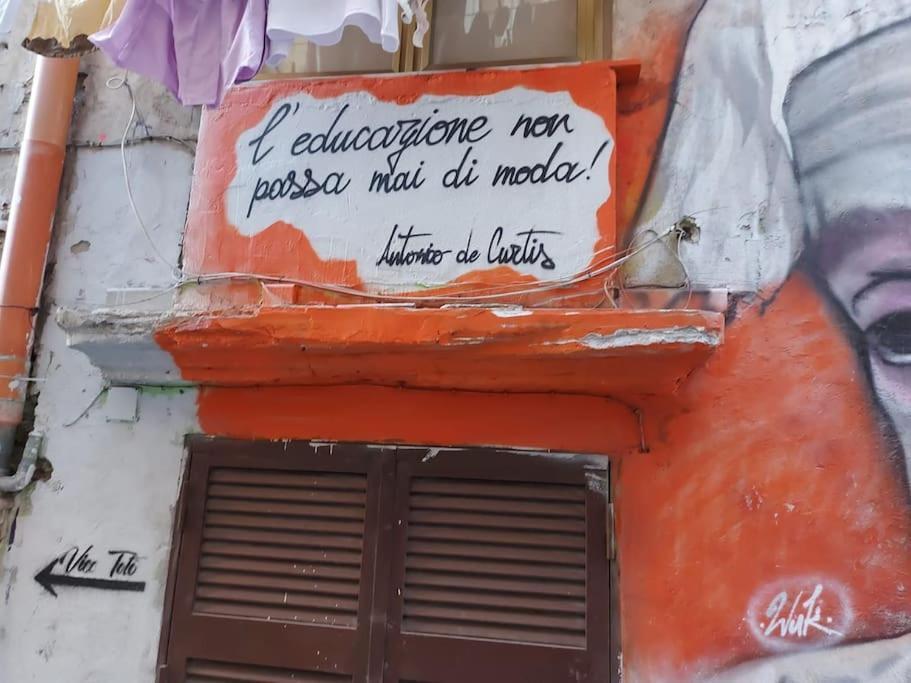 l'educazione non
passa mai di moda!
Antonio de Curtis
Vico Totò
.Wuk.